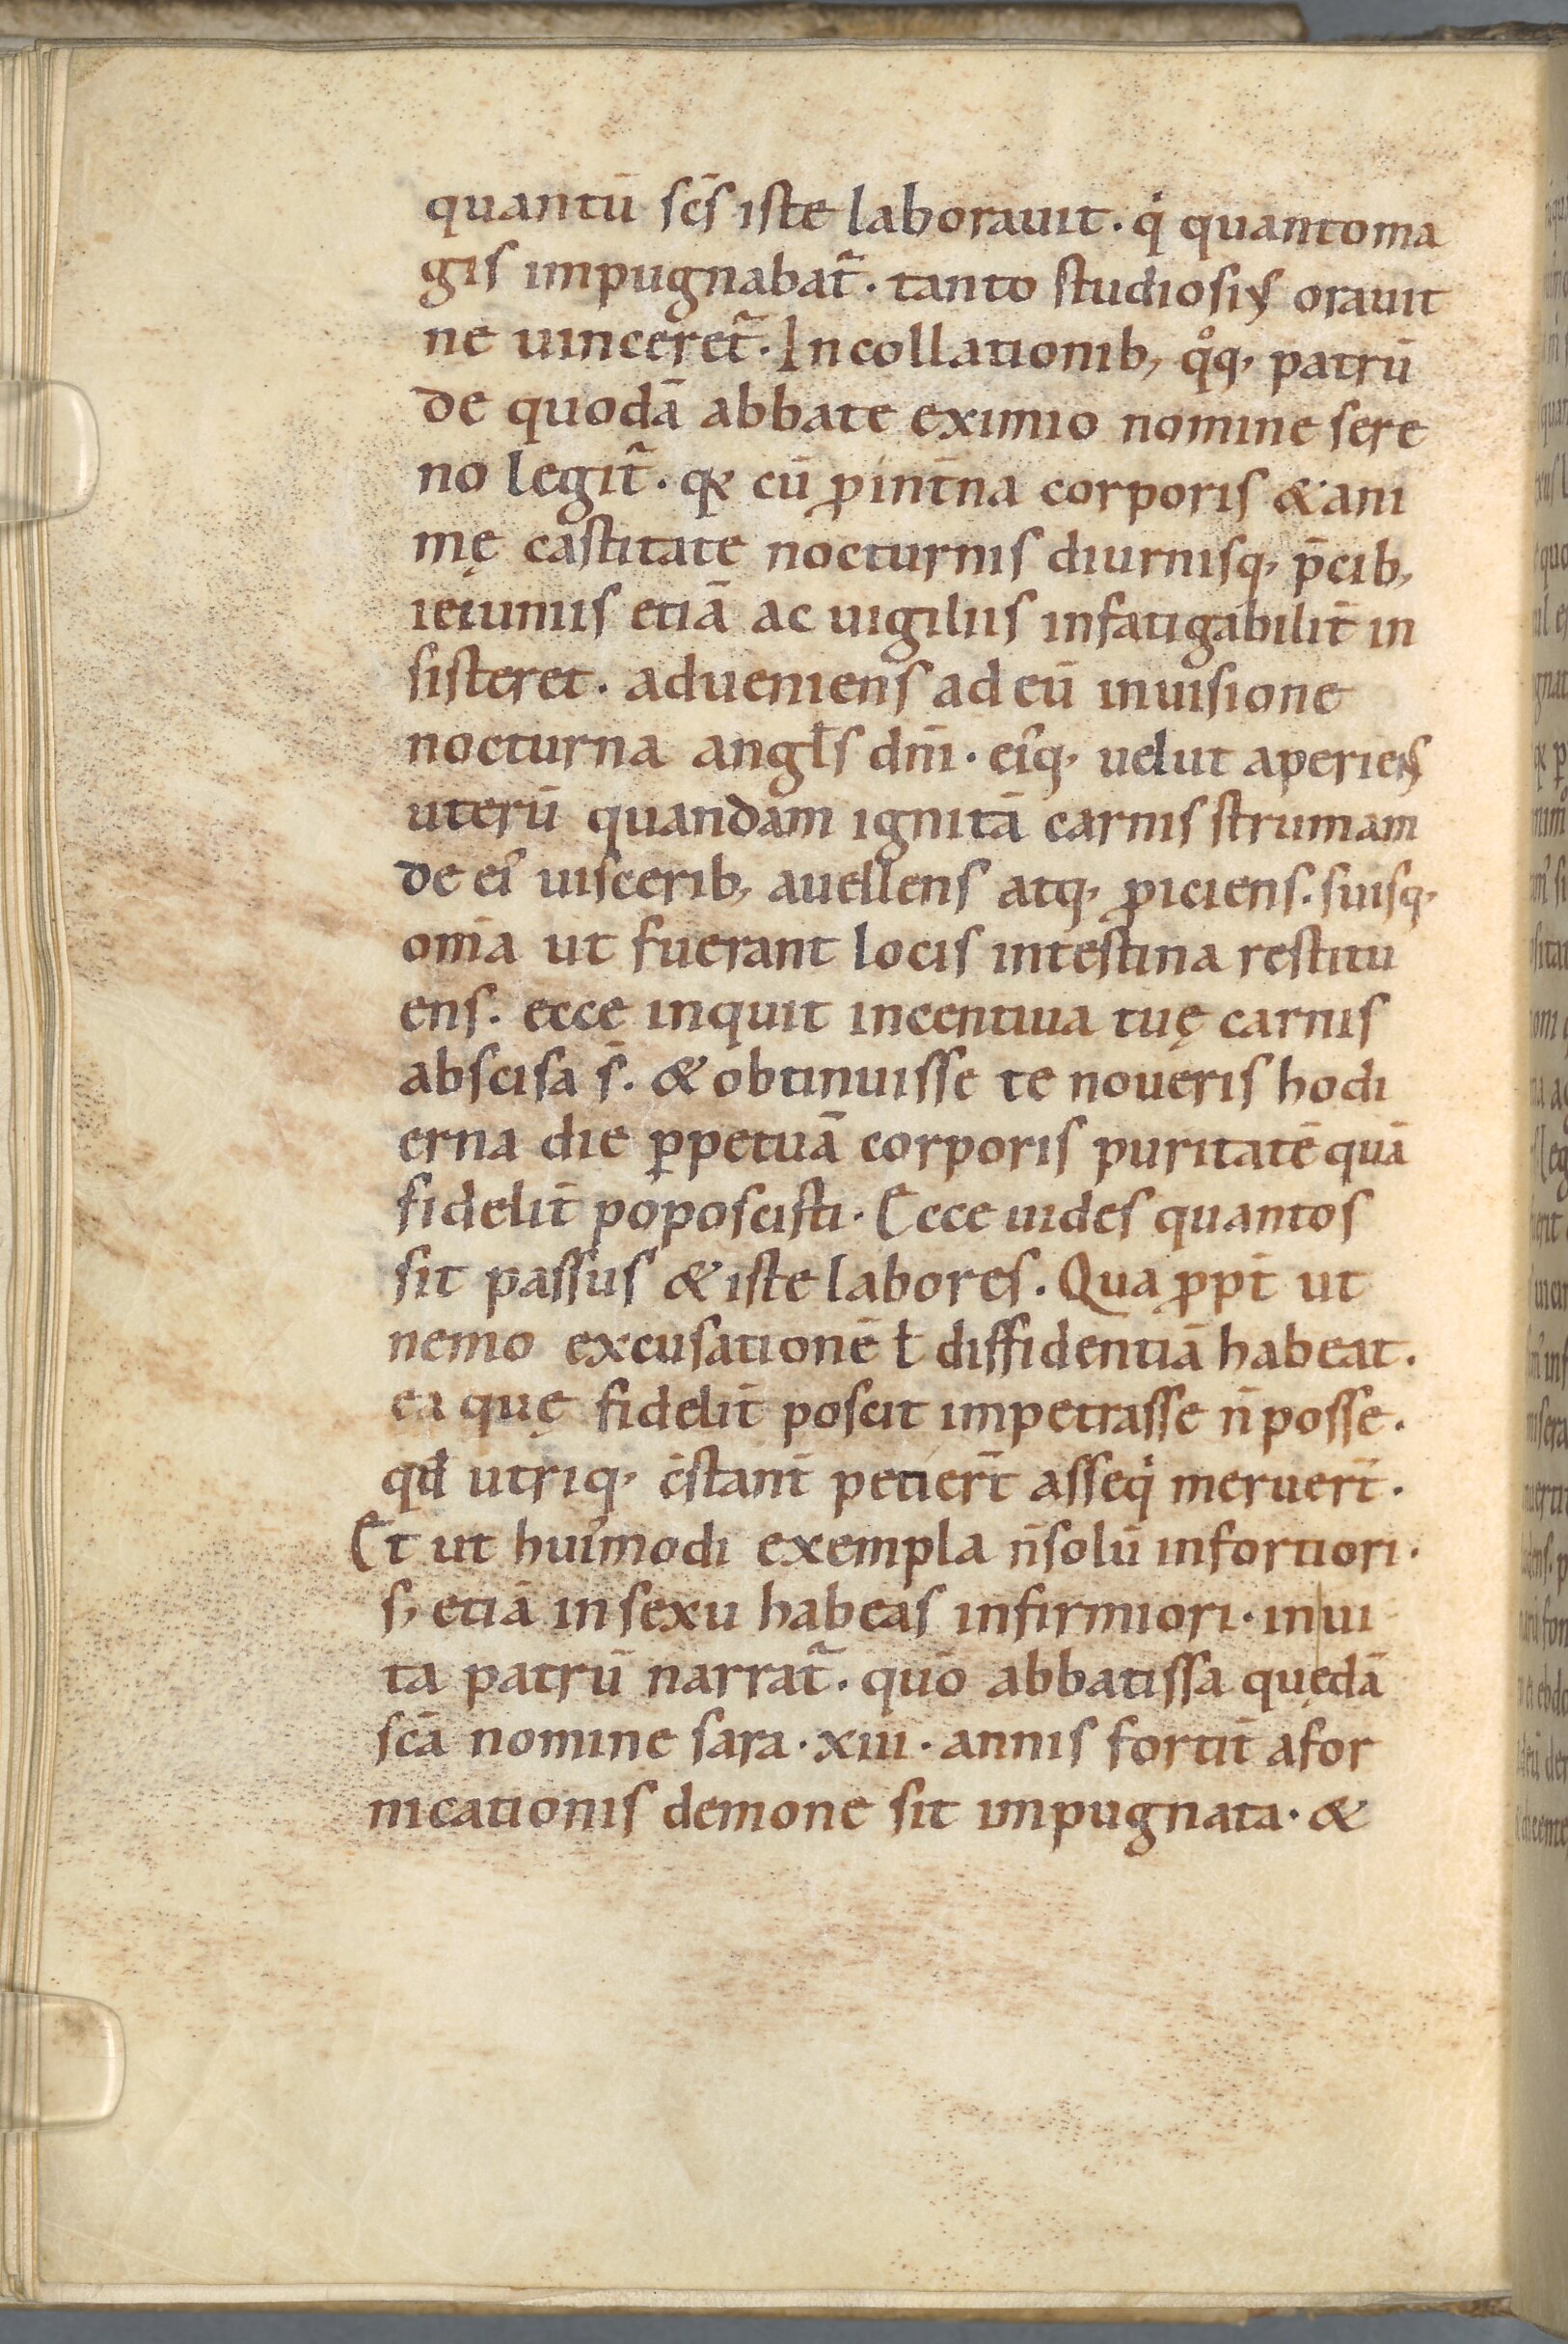 quantū sc̄s iste laborauit. qͥ quantoma
gis impugnabat᷑. tanto studiosiꝰ orauit
ne uinceret᷑. In collationib; qͦq; patrū
de quodā abbate eximio nomine sere
no legit᷑. qꝛ cū ꝓ int̄na corporis & ani
mę castitate nocturnis diurnisq; p̄cib;
ieiuniis etiā ac uigiliis infatigabilit̄ in
sisteret. adueniens ad eū in uisione
nocturna angl̄s dn̄i. eiꝰq; uelut aperiens
uterū quandam ignitā carnis strumam
de eiꝰ uiscerib; auellens atq; ꝓiciens. suisq;
om̄a ut fuerant locis intestina restitu
ens. ecce inquit incentiua tuę carnis
abscisa s̄. & obtinuisse te noueris hodi
erna die ꝑpetuā corporis puritatē quā
fidelit̄ poposcisti. Ecce uides quantos
sit passus & iste labores. Qua ꝓpt̄ ut
nemo excusationē ł diffidentiā habeat.
ea quę fidelit̄ poscit impetrasse n̄ posse.
qd̄ utriq; c̄stant̄ petier̄t asseqͥ meruer̄t.
Et ut huiꝰmodi exempla n̄ solū in fortiori.
s; etiā in sexu habeas infirmiori. in ui
ta patrū narrat᷑. quō abbatissa quędā
sc̄a nomine sara. xiii. annis fortit̄ a for
nicationis demone sit impugnata. &